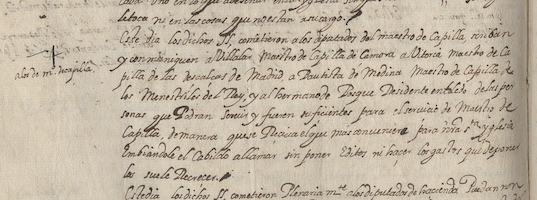 toca ni en las cosas que no estan a su cargo.
Este dia los dichos SS. cometieron a los diputados del maestro de Capilla
y comuniquen a Villalar Maestro de Capilla de Çamora a Vitoria maestro de Ca
a los de mº de capilla
pilla de las descalças de Madrid a Bautista de Medina Maestro de Capilla de
los Menestriles del Rey, y al hermano de Bosque Residente en toledo de las per
sonas que Podran Servir y fueren suficientes para el servicio de Maestro de
Capilla de manera que se Recica el que mas conveniere para nra sta yglesia
Embiandole el Cabildo a llamar sin poner Editos ni hacer los gastos que de poner
los suele Recrecer.
Este dia los dichos SS. cometieron Plenaria mte a los diputados de hacienda Puedan